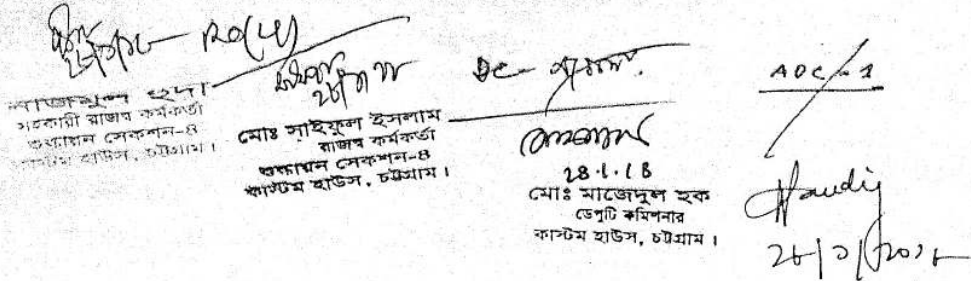 RO(4)
নাজমুল হুদা
সহকারী রাজস্ব কর্মকর্তা
শুল্কায়ন সেকশন-৪
কাস্টম হাউস, চট্টগ্রাম।
মোঃ সাইফুল ইসলাম
রাজস্ব কর্মকর্তা
শুল্কায়ন সেকশন-৪
কাস্টম হাউস, চট্টগ্রাম।
DC
28.1.18
মোঃ মাজেদুল হক
ডেপুটি কমিশনার
কাস্টম হাউস, চট্টগ্রাম।
ADC-1